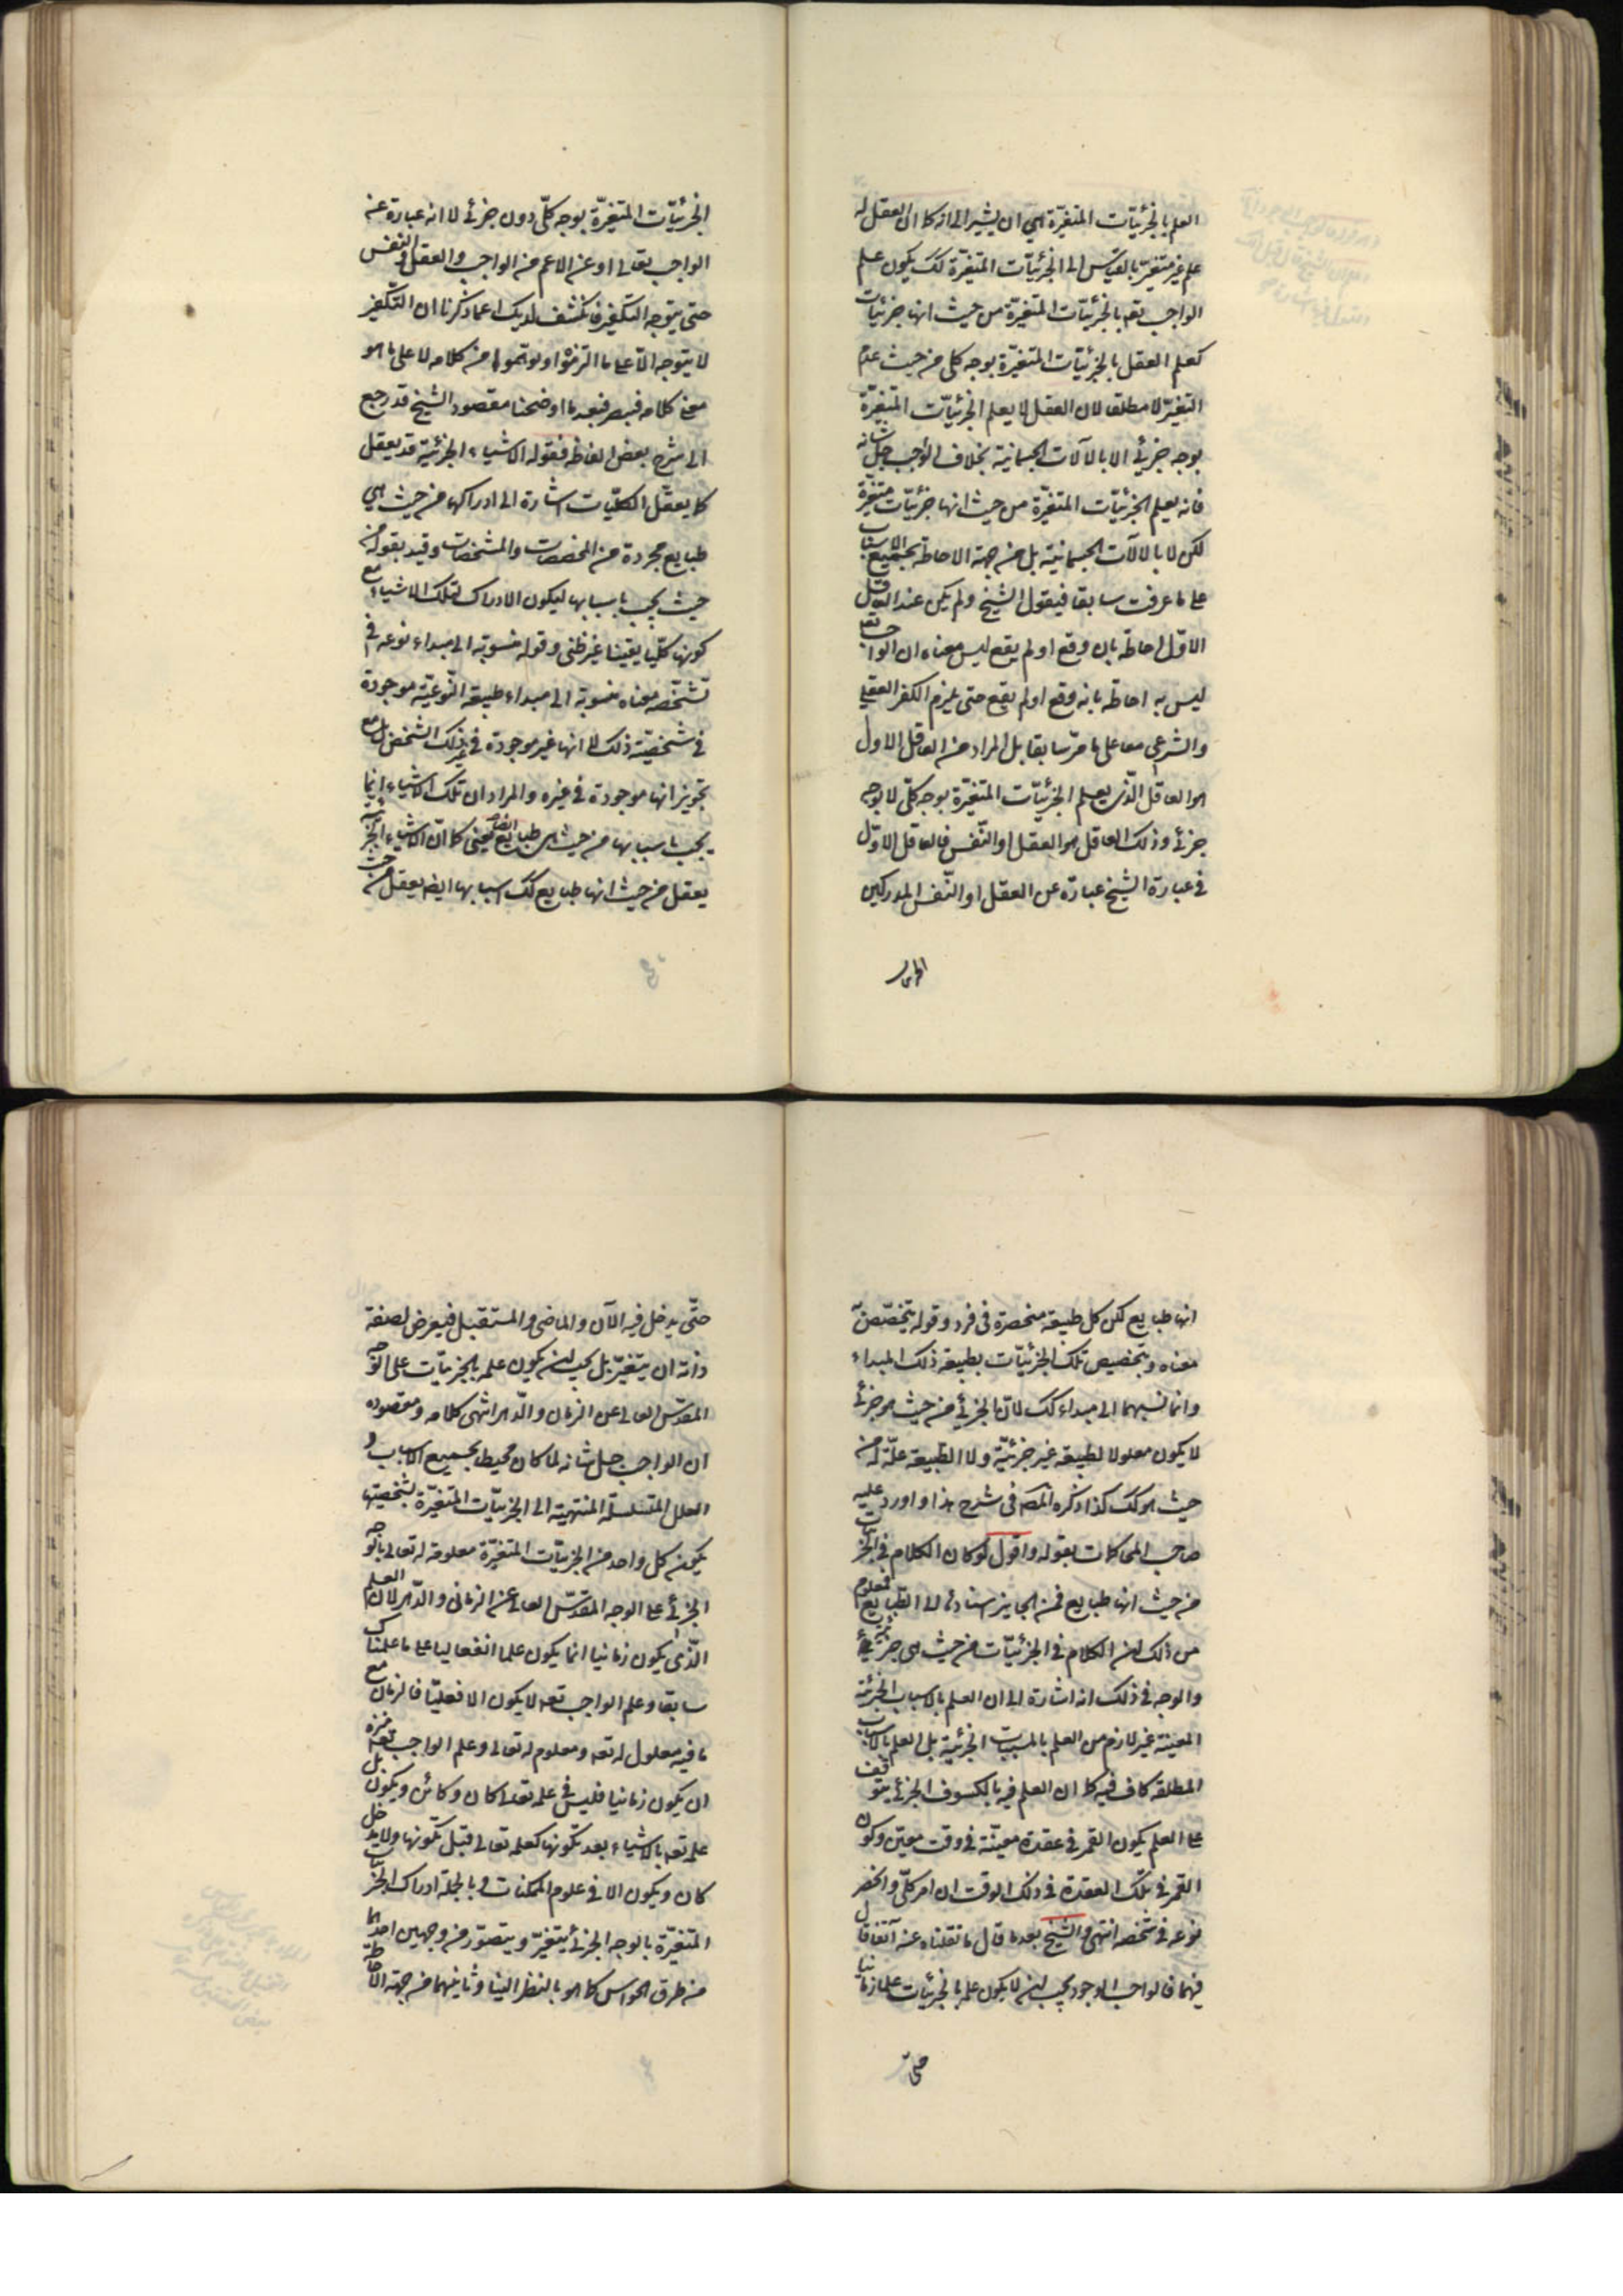 العلم بالجزئيّات المتغيّرة هي ان يشير الى انه كما ان العقل له
علم غير متغيّر بالقياس الى الجزئيّات المتغيّرة كك يكون علم
الواجب تعه بالجزئيّات المتغيّرة من حيث انها جزئيّات
كعلم العقل بالجزئيّات المتغيّرة بوجه كلى من حيث عدم
التغيّر لا مطلقا لان العقل لا يعلم الجزئيّات المتغيّرة
بوجه جزئي الا بالآلات الجسمانية بخلاف الواجب جل شانه
فانه يعلم الجزئيّات المتغيّرة من حيث انها جزئيّات متغيّرة
لكن لا بالآلات الجسمانية بل من جهة الاحاطة بجميع الاسباب
على ما عرفت سابقا فيقول الشيخ ولم يكن عند العاقل
الاوّل احاطة بان وقع او لم يقع ليس معناه ان الواجب تعه
ليس به احاطة بانه وقع او لم يقع حتى يلزم الكفر العقلي
والشرعي معا على ما مرّ سابقا بل المراد من العاقل الاول
هو العاقل الّذى يعلم الجزئيّات المتغيّرة بوجه كلّى لا بوجه
جزئي وذلك العاقل هو العقل او النّفس فالعاقل الاوّل
فى عبارة الشيخ عبارة عن العقل او النّفس المدركين
الجزئيّات المتغيّرة بوجه كلّى دون جزئي لا انه عبارة عن
الواجب تعالى او عن الاعم من الواجب والعقل والنفس
حتى يتوجه التكفير فانكشف لديك عما ذكرنا ان التكفير
لا يتوجه الّا على ما التزموا او توهّموا من كلامه لا على ما هو
معنى كلامه فبصر فبعد ما اوضحنا مقصود الشيخ قد رجع
الى شرح بعض الفاظه فقوله الاشياء الجزئية قد يعقل
كما يعقل الكلّيات اشارة الى ادراكها من حيث هي
طبايع مجردة عن المخصصات والمشخصات وقيد بقوله من
حيث يجب باسبابها ليكون الادراك لتلك الاشياء مع
كونها كلّيا يقينيا غير ظنى وقوله منسوبة الى مبداء نوعه فى
تشخّصه معناه منسوبة الى مبداء طبيعة النّوعيّة موجودة
فى شخصيّة ذلك لا انها غير موجودة فى غير ذلك الشخص بل مع
تجويز انها موجودة فى غيره والمراد ان تلك الاشياء انما
يجب باسبابها من حيث هى طبايع ايضا يعنى كما انّ الاشياء الجزئية
يعقل من حيث انها طبايع كك اسبابها ايضا يعقل من حيث
انها طبايع لكن كل طبيعة منحصرة فى فرد وقوله يتخصّص به
معناه ويتخصيص تلك الجزئيّات بطبيعة ذلك المبداء
وانما نسبهما الى مبداء كك لانّ الجزئي من حيث هو جزئي
لا يكون معلولا لطبيعة غير جزئيّة ولا الطّبيعة علّة له من
حيث هو كك كذا ذكره المصّ فى شرح هذا واورد عليه
صاحب المحاكمات بقوله واقول لو كان الكلام فى الجزئيات
من حيث انها طبايع فمن الجايز اسنادها الى الطّبايع فعلم
من ذلك ان الكلام فى الجزئيّات من حيث هى جزئيّة
والوجه فى ذلك انه اشارة الى ان العلم بالاسباب الجزئية
المعينة غير لازم من العلم بالمسببات الجزئية بل العلم بالاسباب
المطلقة كاف فيه كما ان العلم فيه بالكسوف الجزئي يتوقف
على العلم بكون القمر فى عقدة معيّنة فى وقت معيّن وكون
القمر فى تلك العقدة فى ذلك الوقت ان امر كلّى وانحصر
نوعه فى شخصه انتهى والشيخ بعد ما قال ما نقلناه عنه آنفا قال
فيهما فالواجب الوجود يجب ان لا يكون علمه بالجزئيات علما زمانيا
حتّى يدخل فيه الآن والماضى والمستقبل فيعرض لصفة
ذاته ان يتغيّر بل يجب ان يكون علمه بالجزئيّات على الوجه
المقدّس العالى عن الزمان والدّهر انتهى كلامه ومقصوده
ان الواجب جل شانه لما كان محيطا بجميع الاسباب و
العلل المتسلسلة المنتهية الى الجزئيّات المتغيّرة بشخصيتها
يكون كل واحد من الجزئيّات المتغيّرة معلومة له تعالى بالوجه
الجزئي على الوجه المقدّس العالى عن الزمانى والدّهر لان العلم
الّذى يكون زمانيا انما يكون علما انفعاليا على ما علمناك
سابقا وعلم الواجب تعه لا يكون الا فعليّا فالزمان مع
ما فيه معلول له تعه ومعلوم له تعالى وعلم الواجب تعه منزه
ان يكون زمانيا فليس فى علمه تعالى كان وكائن ويكون بل
علمه تعه بالاشياء بعد تكونها كعلمه تعالى قبل تكونها ولا يدخل
كان ويكون الا فى علوم الممكنات وبالجملة ادراك الجزئيات
المتغيّرة بالوجه الجزئي يتغيّر ويتصوّر من وجهين احدهما
من طرق الحواس كما هو بالنظر الينا وثانيهما من جهة الاحاطة